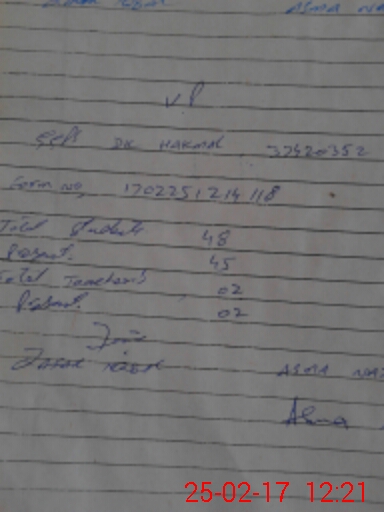 ASMA NA
VP
GGPS DK HAKMAL 32420352
Form No, 170225121 4118
Total Students 48
Present. 45
Total Teachers 02
Present. 02
ASMA NAZ
Asma
25-02-17 12:21